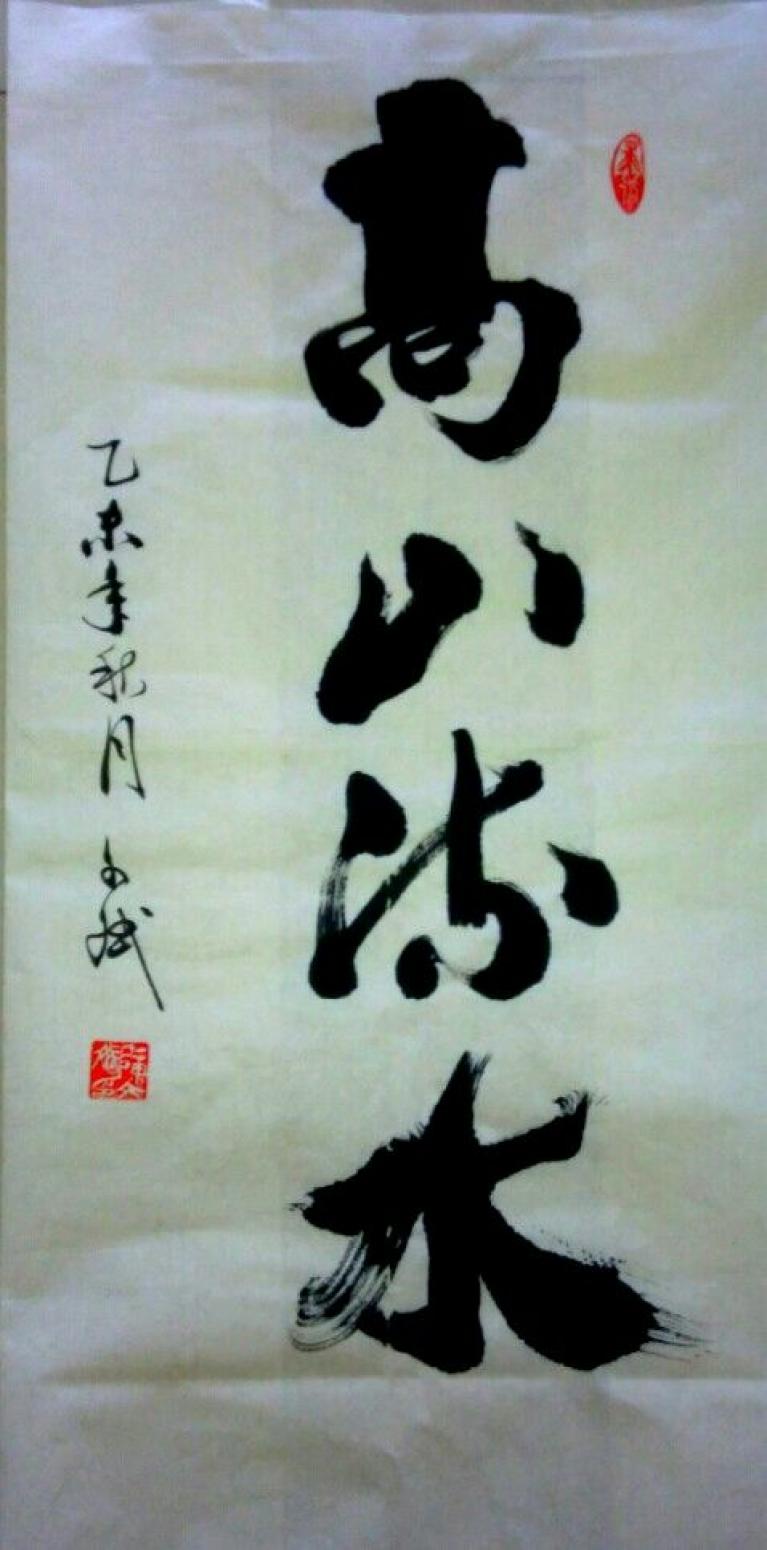 高山流水
乙未年秋月